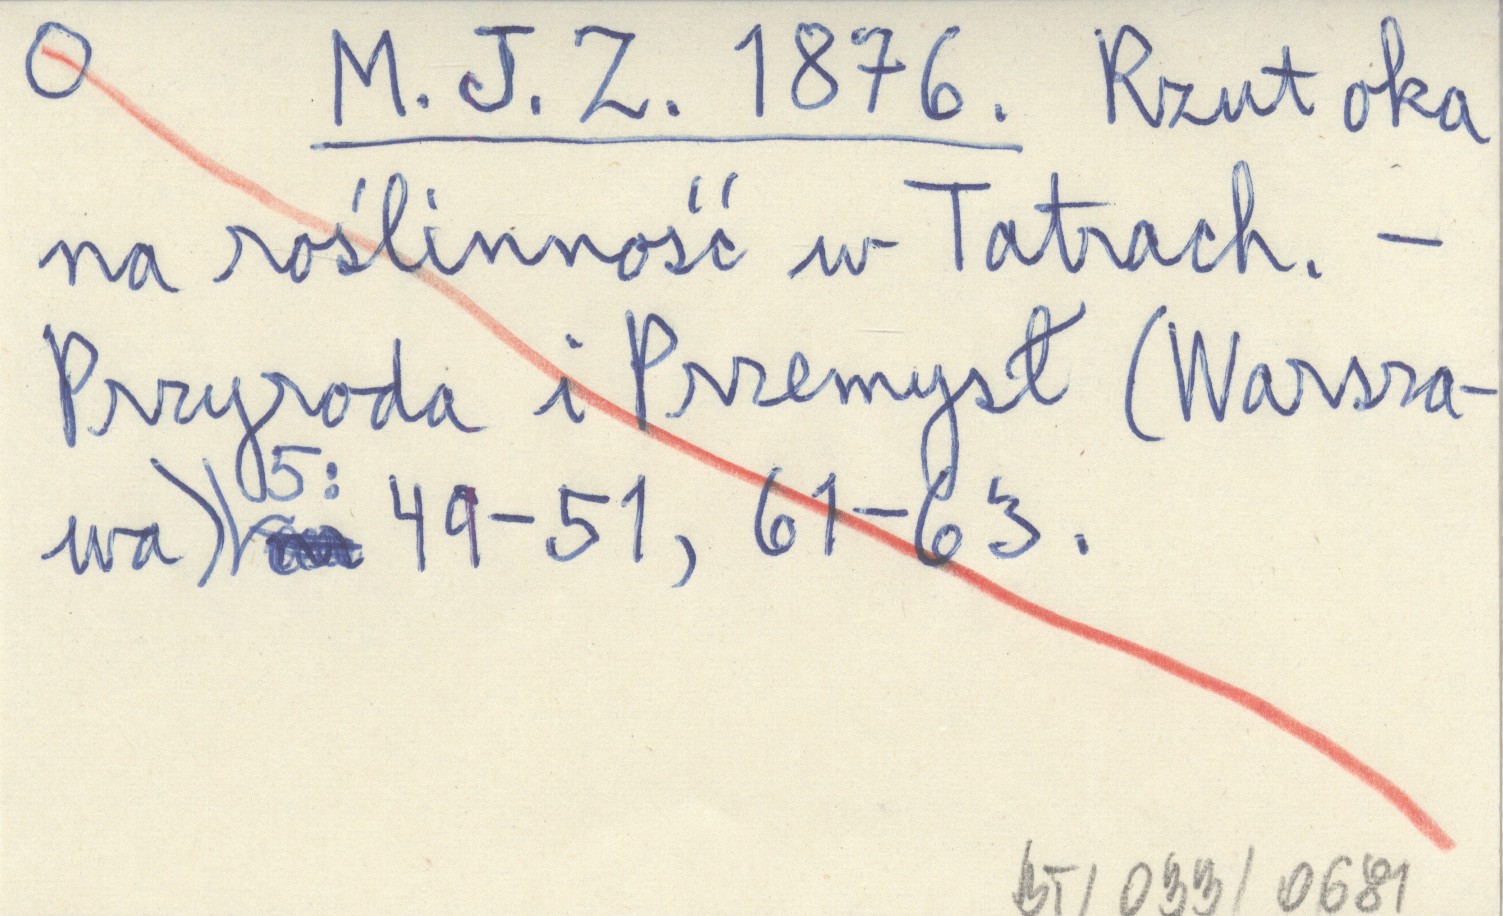 O M. J. Z. 1876. Rzut oka
na roślinność w Tatrach. -
Przyroda i Przemysł (Warsza-
wa) 5: 49-51, 61-63.
BT/ 033/ 0681